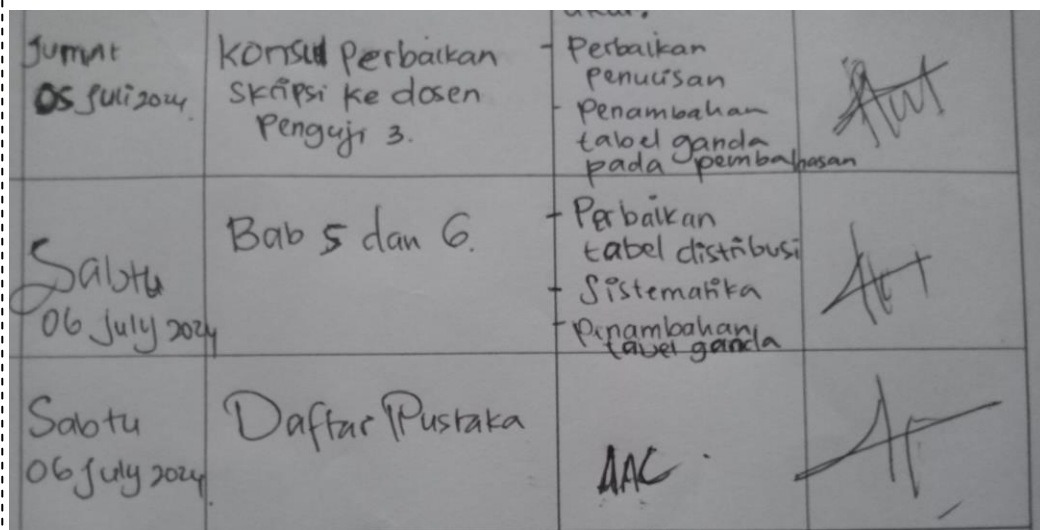 Jumat
05 Juli 2024
Konsul Perbaikan
Skripsi ke dosen
Penguji 3.
- Perbaikan
penulisan
- Penambahan
tabel ganda
pada pembahasan
Sabtu
06 July 2024
Bab 5 dan 6.
- Perbaikan
tabel distribusi
- Sistematika
- Penambahan
tabel ganda
Sabtu
06 July 2024
Daftar Pustaka
AAC